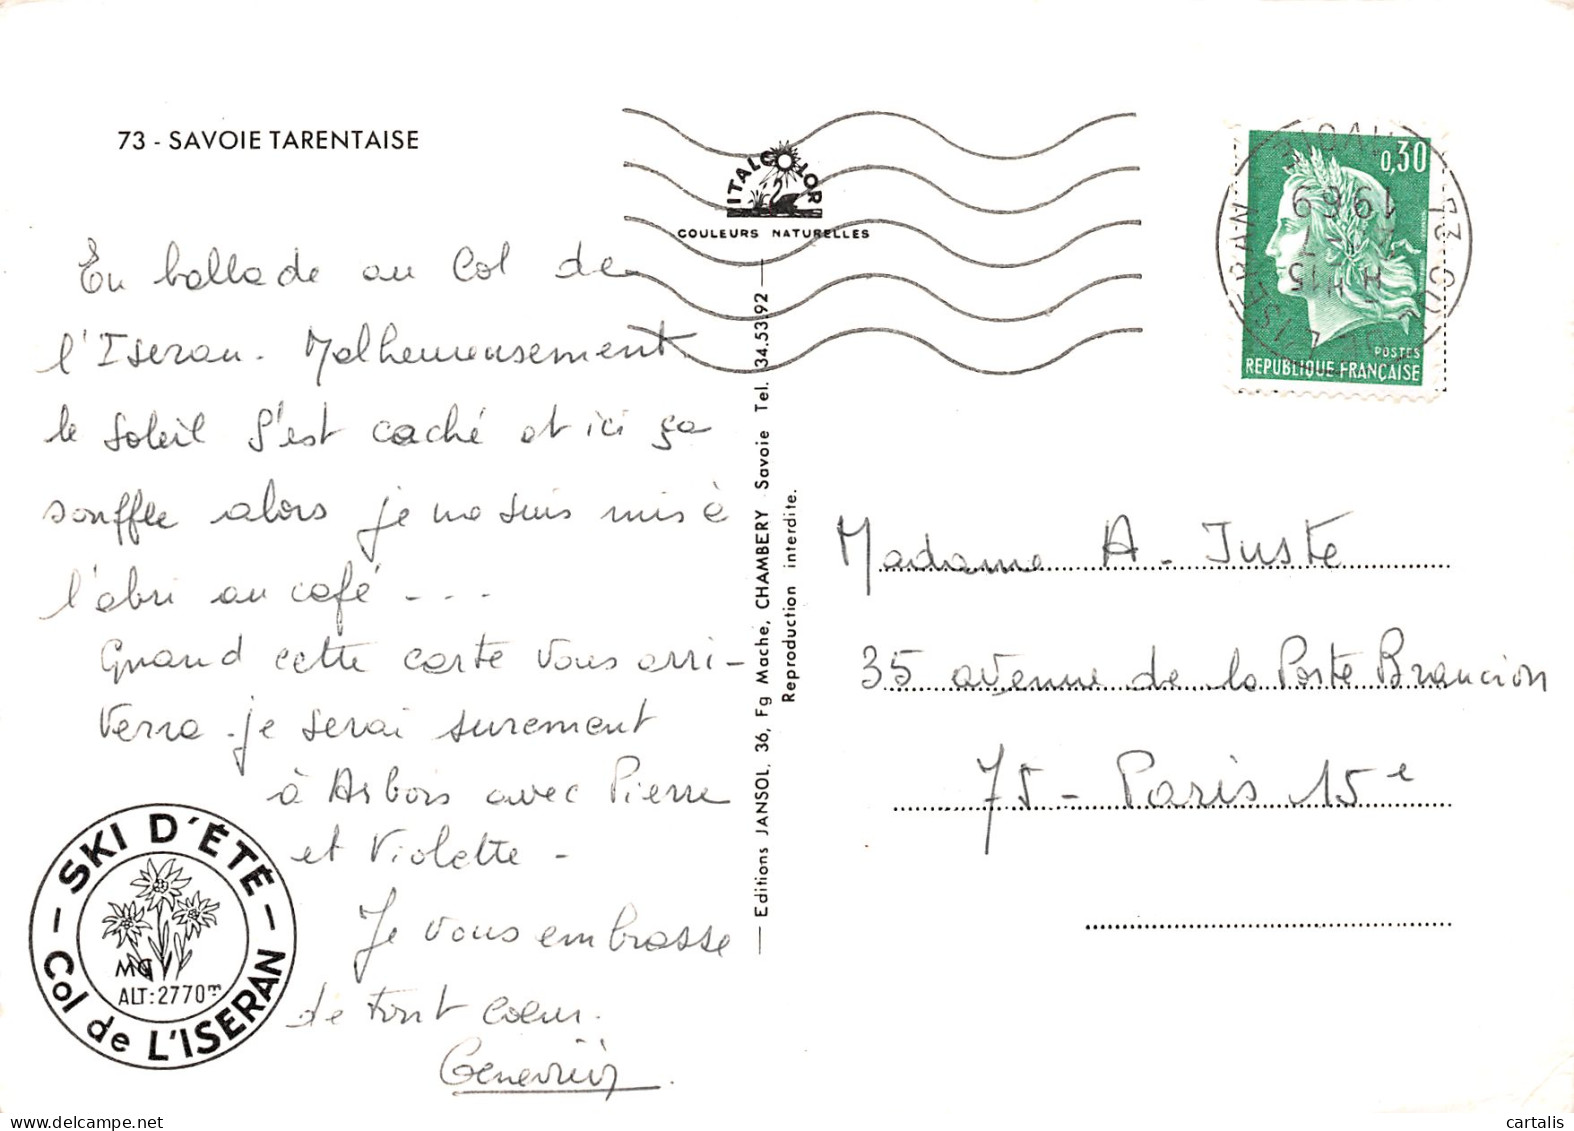 73 - SAVOIE TARENTAISE
ITALCOLOR
COULEURS NATURELLES
En ballade au Col de
l'Iseran. Malheureusement
le soleil s'est caché et ici ça
souffle alors je me suis mis à
l'abri au café ...
Quand cette carte vous arri-
verra je serai surement
à Arbois avec Pierre
et Violette -
Je vous embrasse
de tout coeur.
Geneviève.
SKI D'ÉTÉ
MG
ALT: 2770m
Col de L'ISERAN
Editions JANSOL, 36, Fg Mache, CHAMBERY Savoie Tel. 34.53.92
Reproduction interdite.
0,30
POSTES
REPUBLIQUE FRANÇAISE
73 COL DE L'ISERAN
SAVOIE
1969
H15
Madame A. Juste
35 avenue de la Porte Brancion
75 - Paris 15e
www.delcampe.net
cartalis